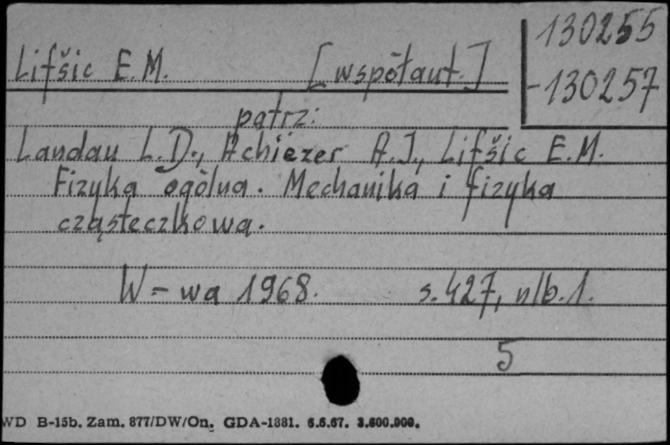 130255
-130257
Lifšic E.M. [współaut.]
patrz:
Landau L.D., Achiezer A.I., Lifšic E.M.
Fizyka ogólna. Mechanika i fizyka
cząsteczkowa.
W-wa 1968. s. 427, nlb. 1.
5
WD B-15b. Zam. 877/DW/On. GDA-1881. 6.6.67. 3.600.000.